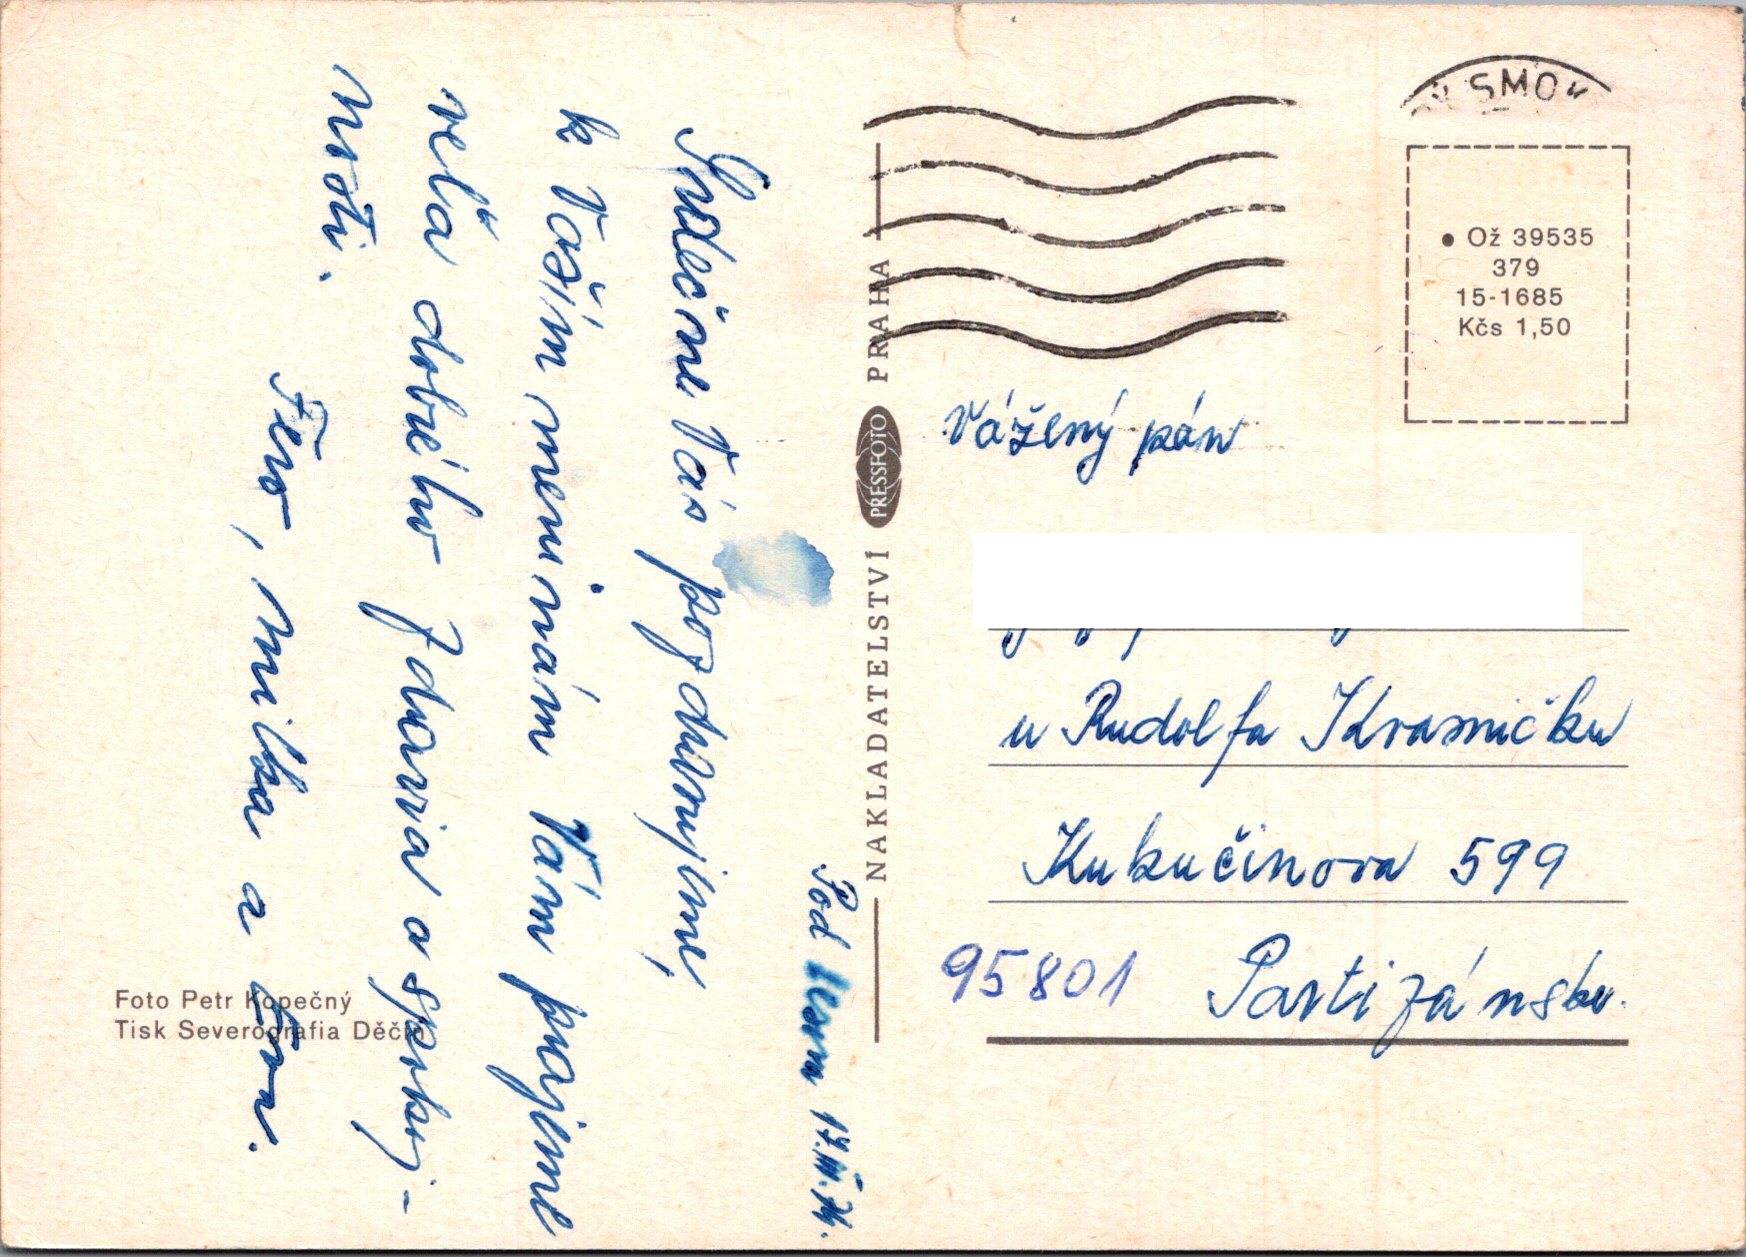 Pod lesom 17.III.76.
Srdečne Vás pozdravujeme,
k Vašim meninám Vám prajeme
veľa dobrého zdravia a spokoj-
nosti.
Fero, Milka a Eva.
NAKLADATELSTVÍ PRESSFOTO PRAHA
SMOK
Ož 39535
379
15-1685
Kčs 1,50
Vážený pán
u Rudolfa Krasničku
Kukučinova 599
95801 Partizánske.
Foto Petr Kopečný
Tisk Severografia Děčín